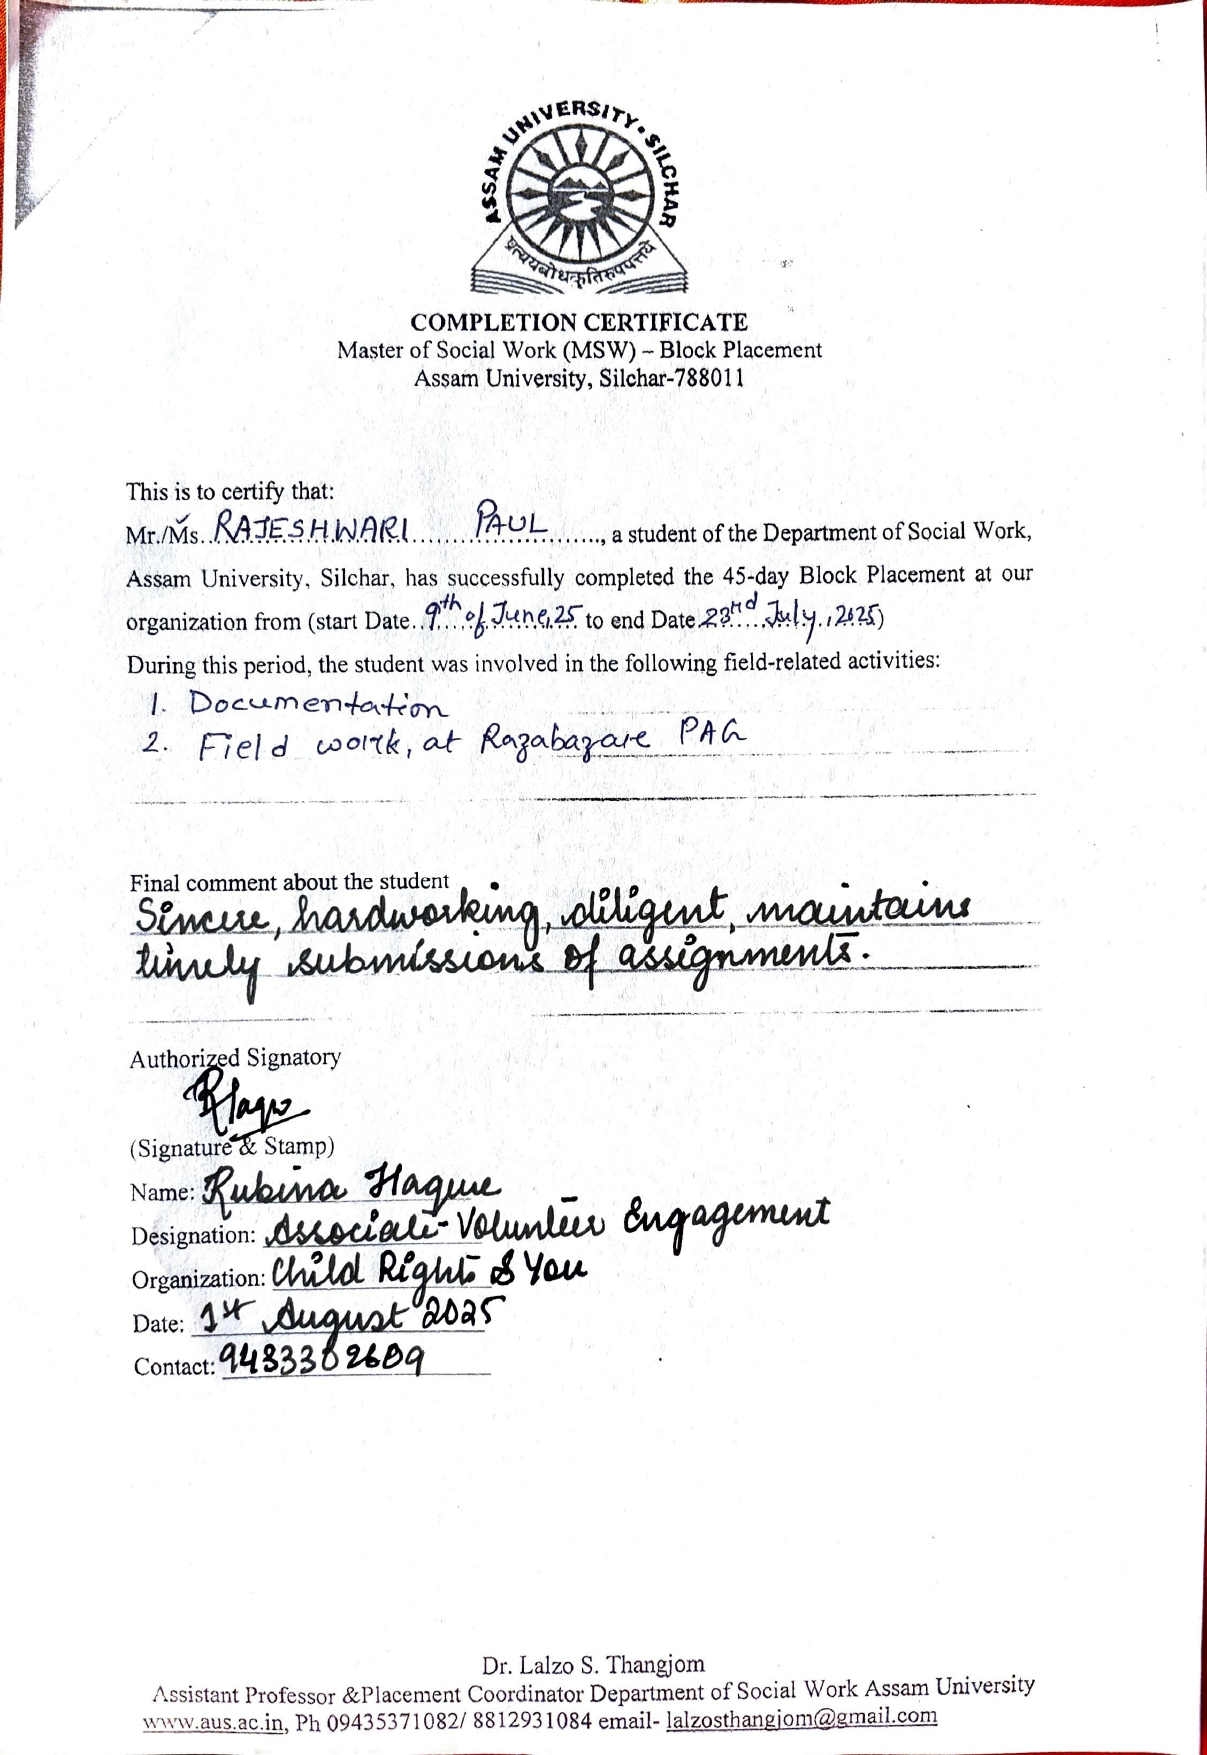 ASSAM UNIVERSITY • SILCHAR
COMPLETION CERTIFICATE
Master of Social Work (MSW) – Block Placement
Assam University, Silchar-788011
This is to certify that:
Mr./Ms. RAJESHWARI PAUL, a student of the Department of Social Work,
Assam University, Silchar, has successfully completed the 45-day Block Placement at our
organization from (start Date..9th of June,25 to end Date 23rd July, 2025)
During this period, the student was involved in the following field-related activities:
1. Documentation
2. Field work, at Razabazare PAG
Final comment about the student
Sincere, hardworking, diligent, maintains
timely submissions of assignments.
Authorized Signatory
(Signature & Stamp)
Name: Rubina Haque
Designation: Associate-Volunteer Engagement
Organization: Child Rights & You
Date: 1st August 2025
Contact: 9433302609
Dr. Lalzo S. Thangjom
Assistant Professor &Placement Coordinator Department of Social Work Assam University
www.aus.ac.in, Ph 09435371082/ 8812931084 email- lalzosthangjom@gmail.com